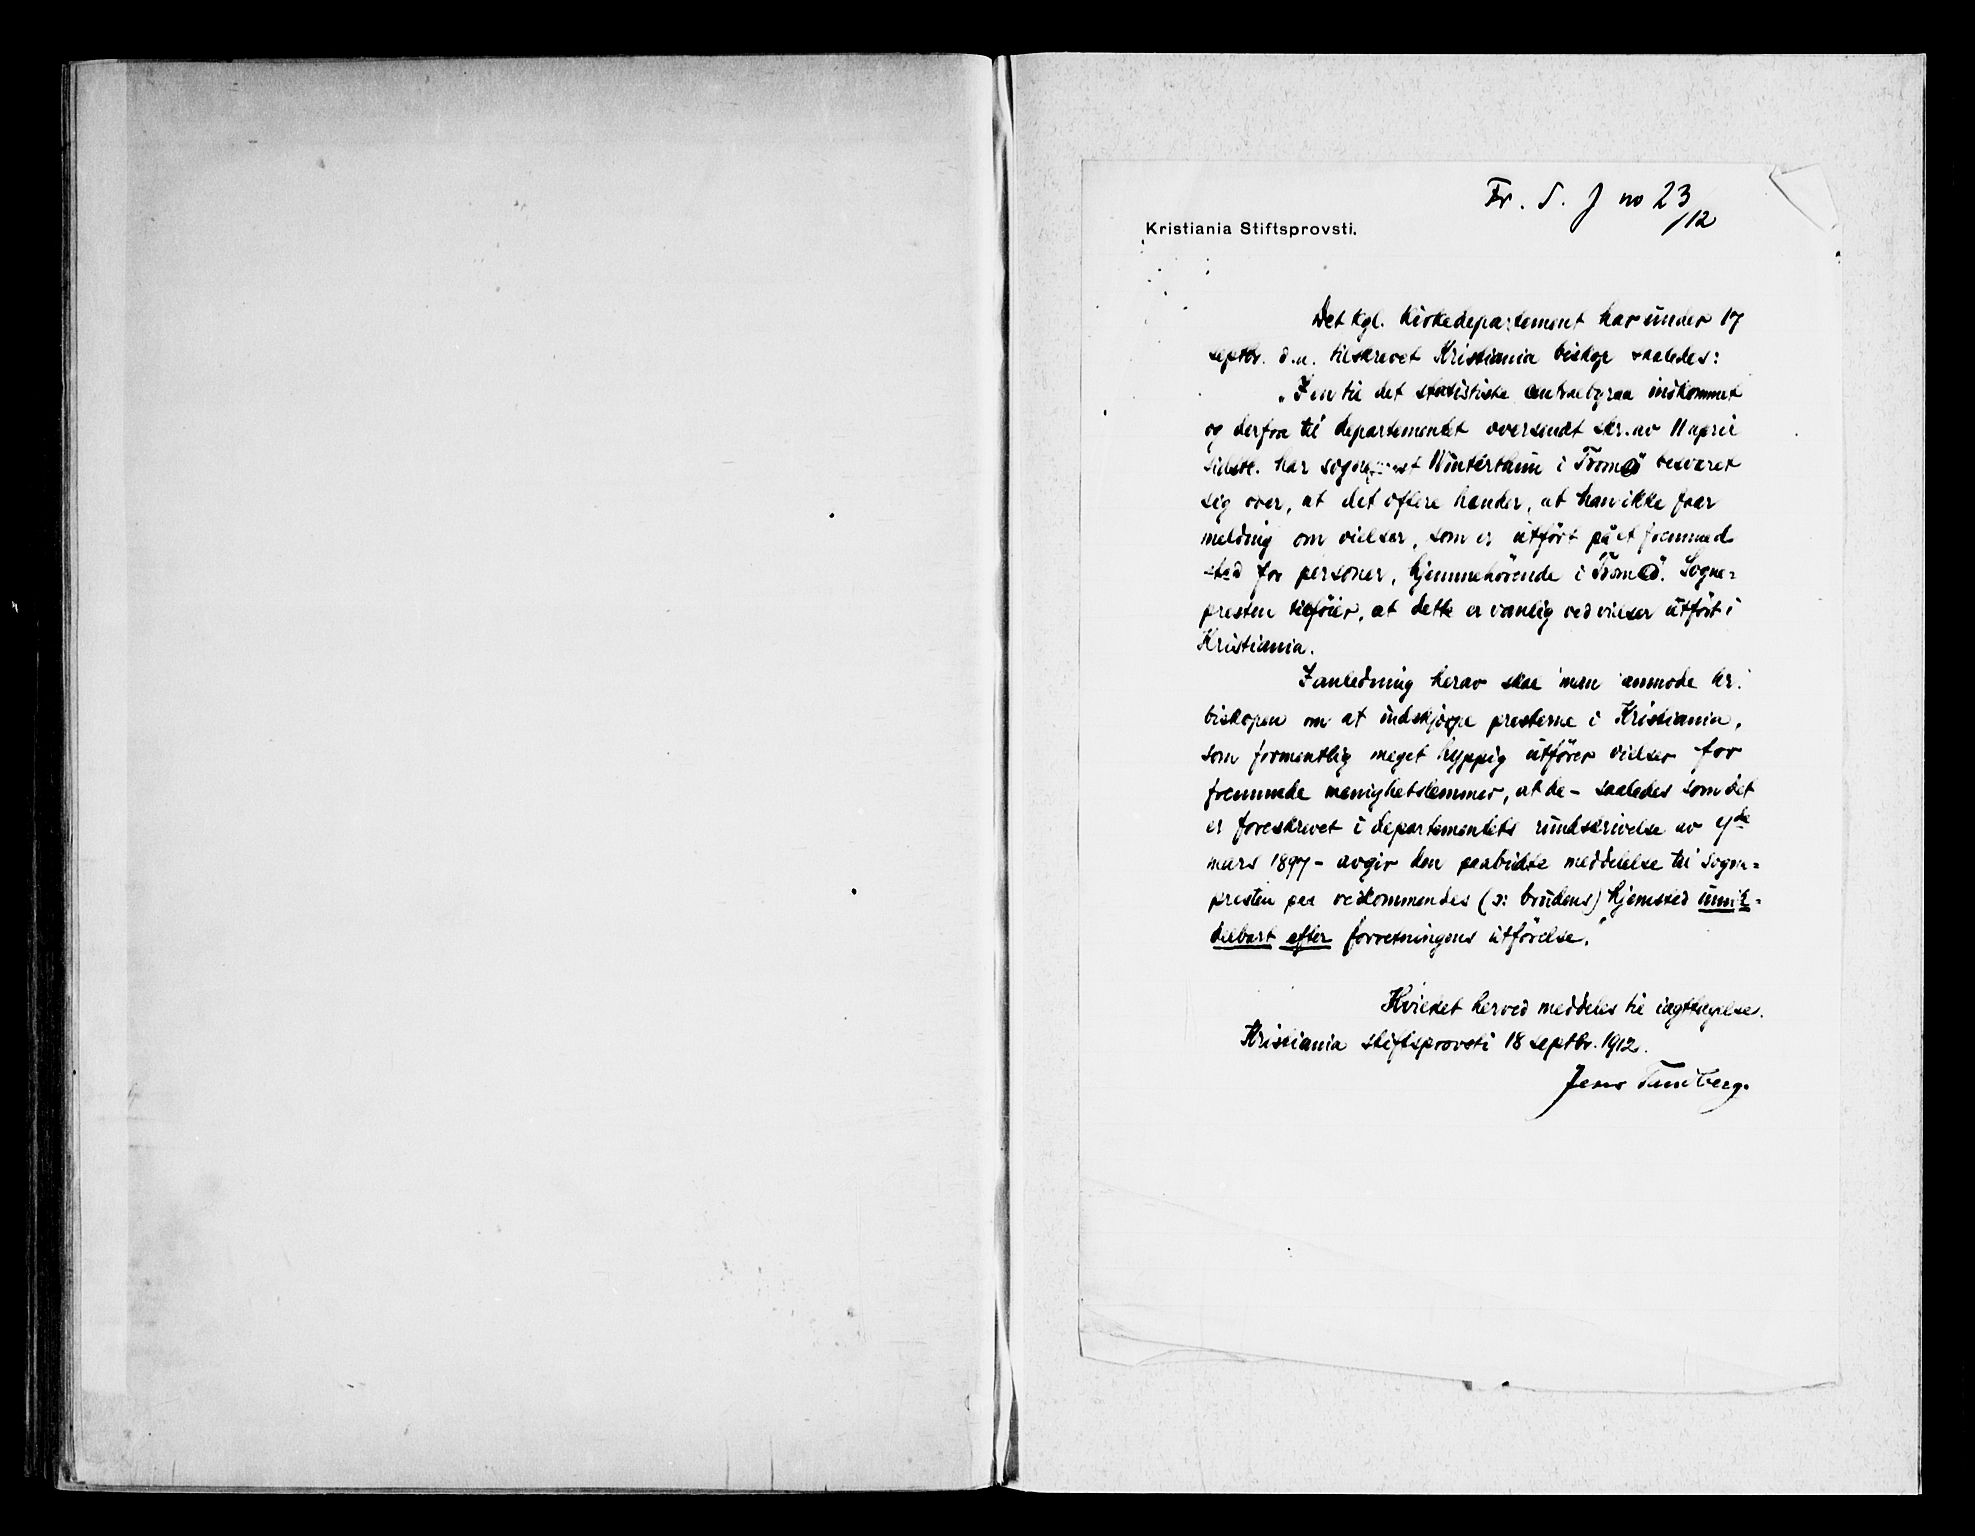 Fr. S. J no 23
/12
Kristiania Stiftsprovsti.
Det kgl. kirkedepartement har under 17
septbr. d.a. tilskrevet Kristiania biskop saaledes:
"I en til det statistiske centralbyraa indkommet
og derfra til departementet oversendt skr. av 11 april
sidstl. har sogneprest Winterthun i Tromø besværet
sig over, at det oftere hænder, at han ikke faar
melding om vielser, som er utført på et fremmed
sted for personer, hjemmehørende i Tromø. Sogne=
presten tilføier, at dette er vanlig ved vielser utført i
Kristiania.
I anledning herav skal man anmode hr.
biskopen om at indskjærpe presterne i Kristiania,
som formentlig meget hyppig utfører vielser for
fremmede menighetslemmer, at de - saaledes som det
er foreskrevet i departementets rundskrivelse av 9de
mars 1897 - avgir den paabudte meddelelse til sogne=
presten paa vedkommendes (ɔ: brudens) hjemsted umid=
delbart efter forretningens utførelse."
Hvilket herved meddeles til iagttagelse.
Kristiania stiftsprovsti 18 septbr. 1912.
Jens